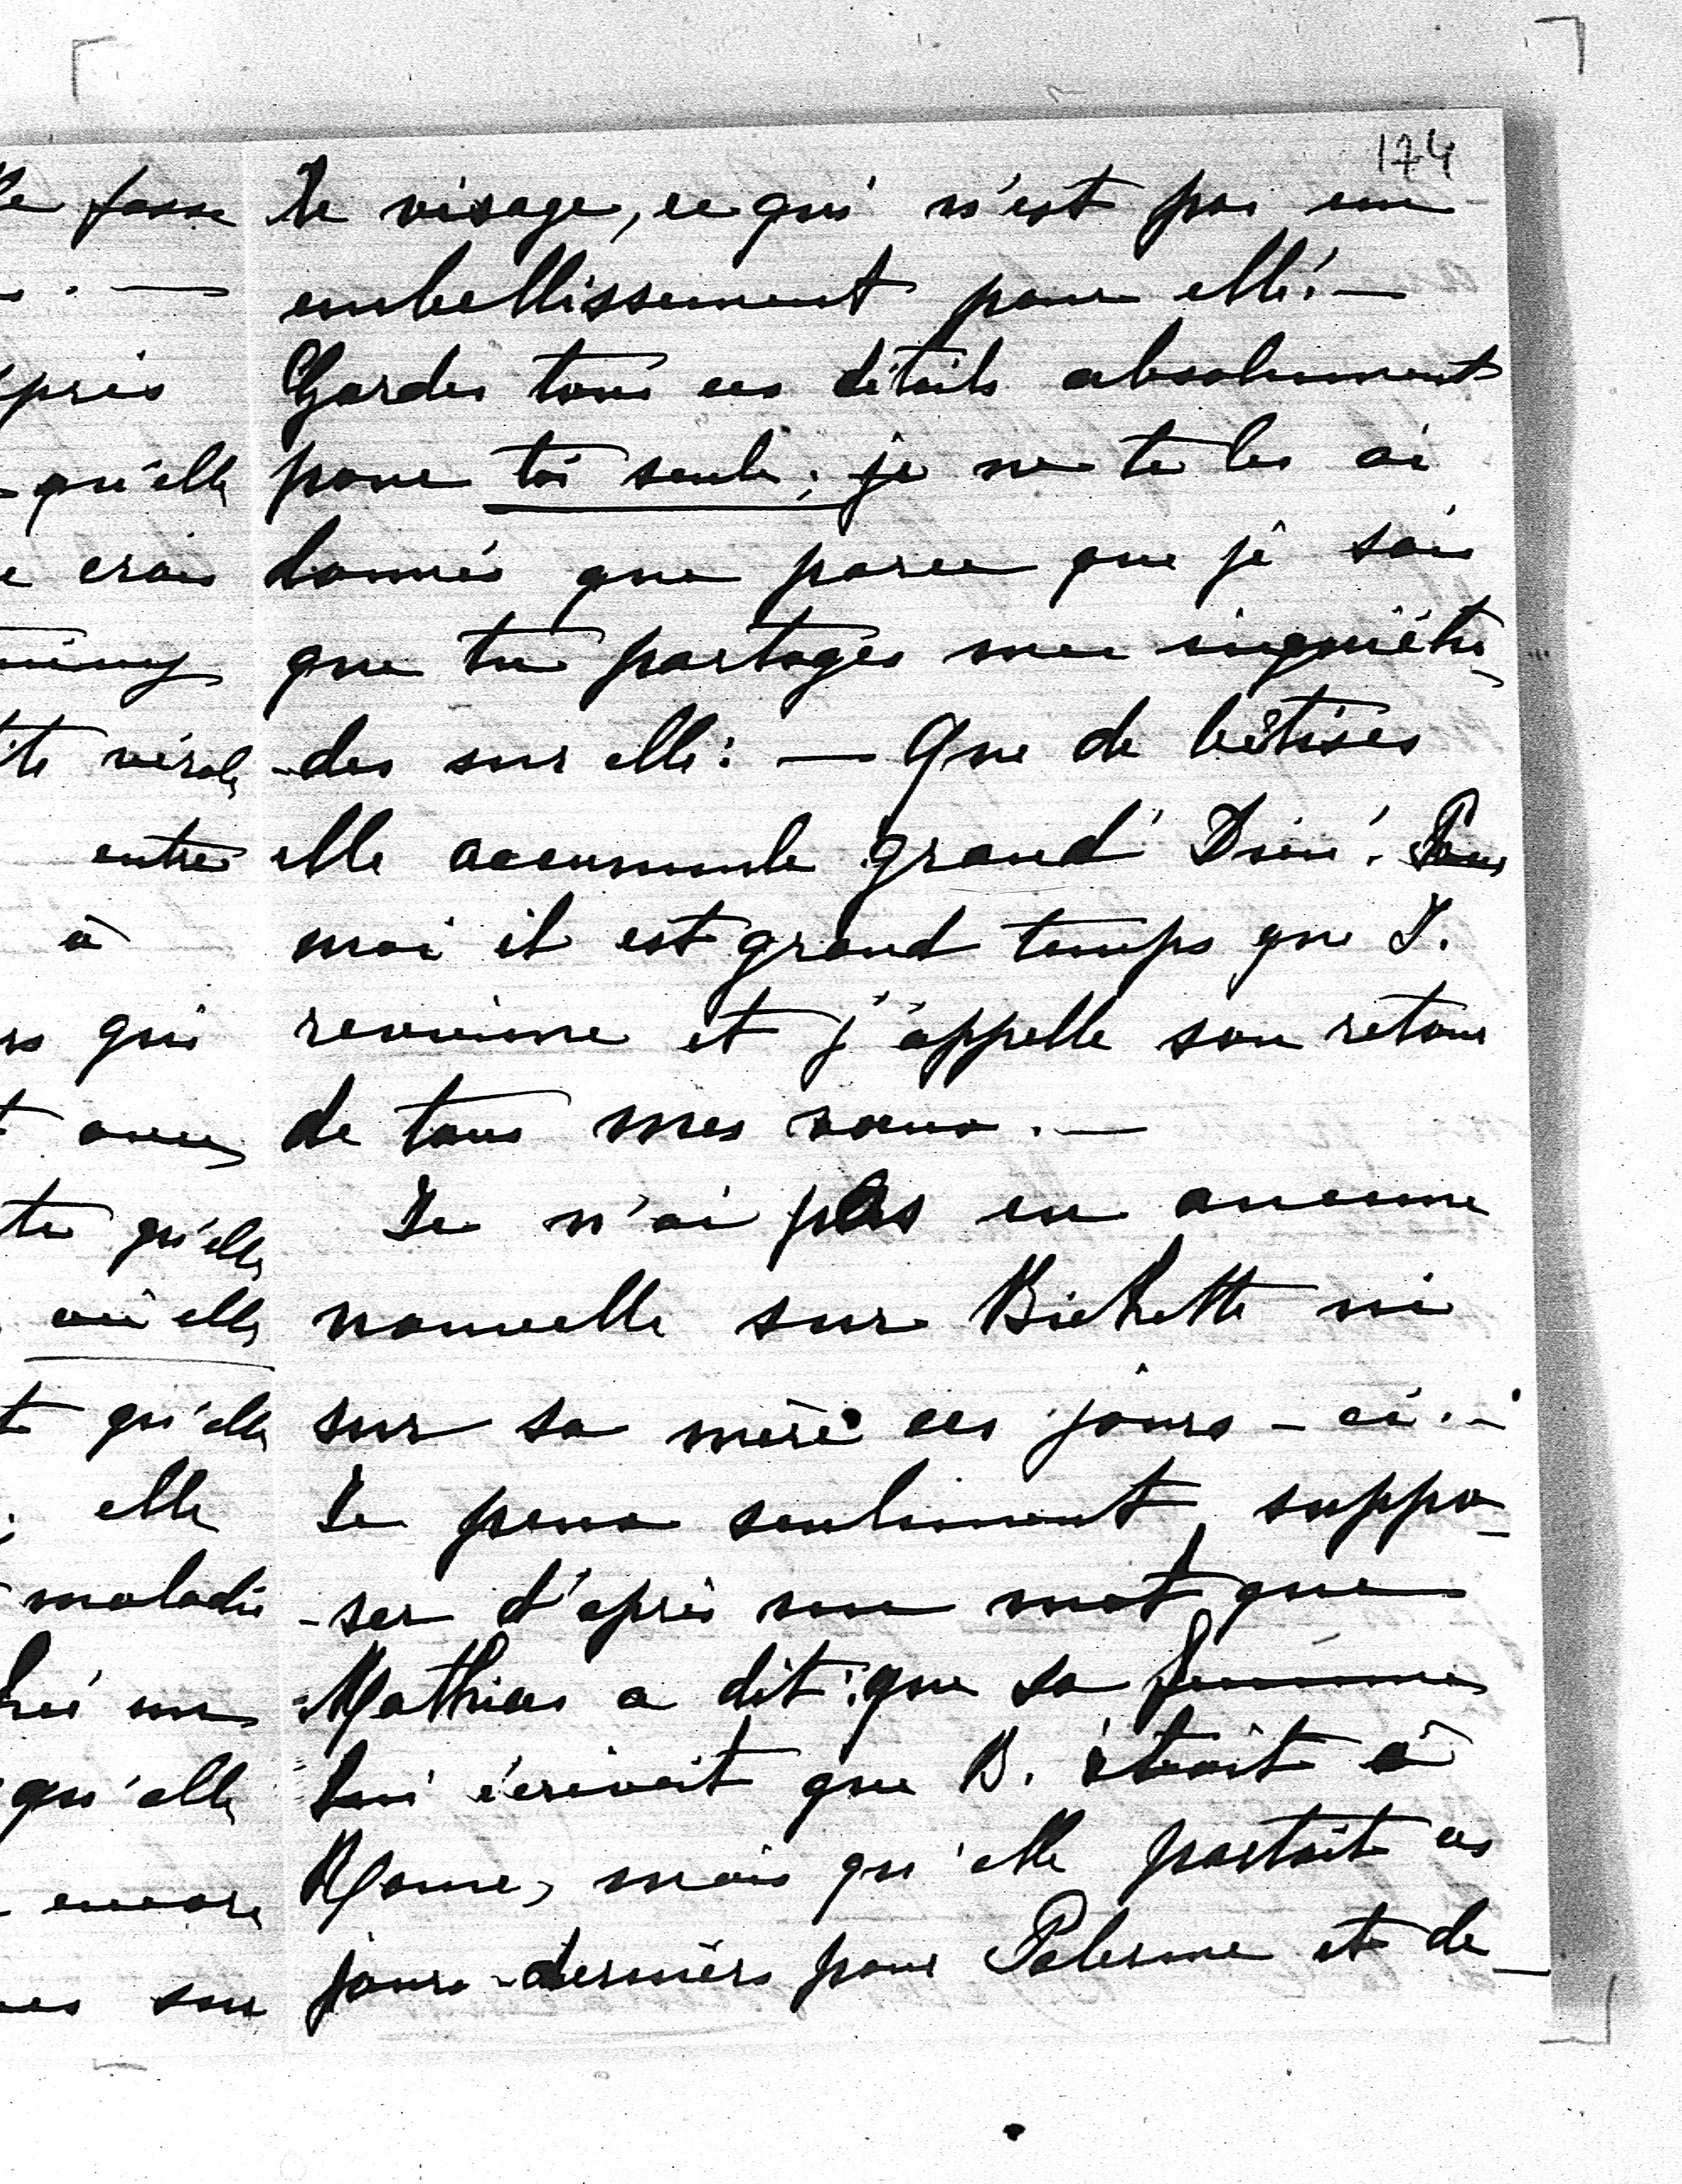 174
le visage, ce qui n'est pas un
embellissement pour elle. —
Gardes tous ces détails absolument
pour toi seule; je ne te les ai
donnés que parce que je sais
que tu partages mes inquiétu-
-des sur elle: — Que de bêtises
elle accumule grand Dieu! Pour
moi il est grand temps que J.
revienne et j'appelle son retour
de tous mes vœux. —
Je n'ai pas eu aucune
nouvelle sur Bichette ni
sur sa mère ces jours-ci. -
Je peux seulement suppo-
-ser d'après un mot que
Mathias a dit: que sa femme
lui écrivait que B. était à
Rome, mais qu'elle partait ces
jours derniers pour Palerme et de-
le fasse
. —
après
qu'elle
crois
vérole
entre
à
qui
avec
qu'elle
où elle
qu'elle
elle
maladie
un
qu'elle
encore
son